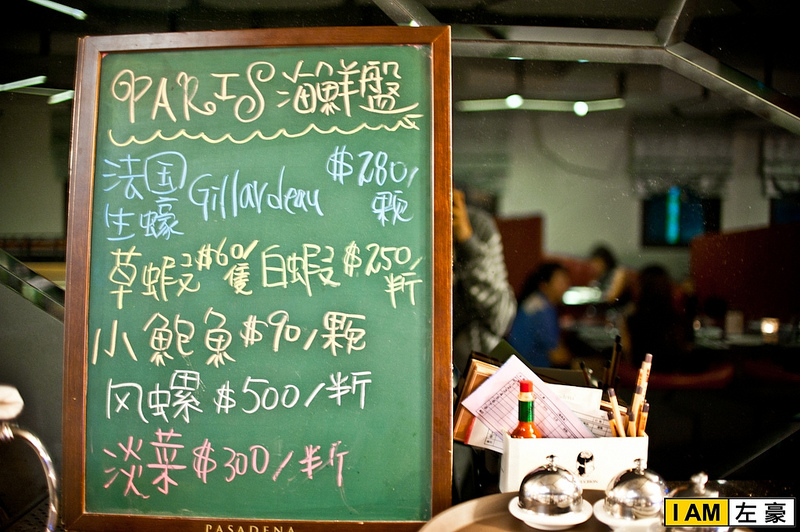 PARIS 海鮮盤
法国 Gillardeau $280/
生蠔 顆
草蝦 $60/隻 白蝦 $250/半斤
小鮑魚 $90/顆
风螺 $500/半斤
淡菜 $300/半斤
PASADENA
I AM 左豪